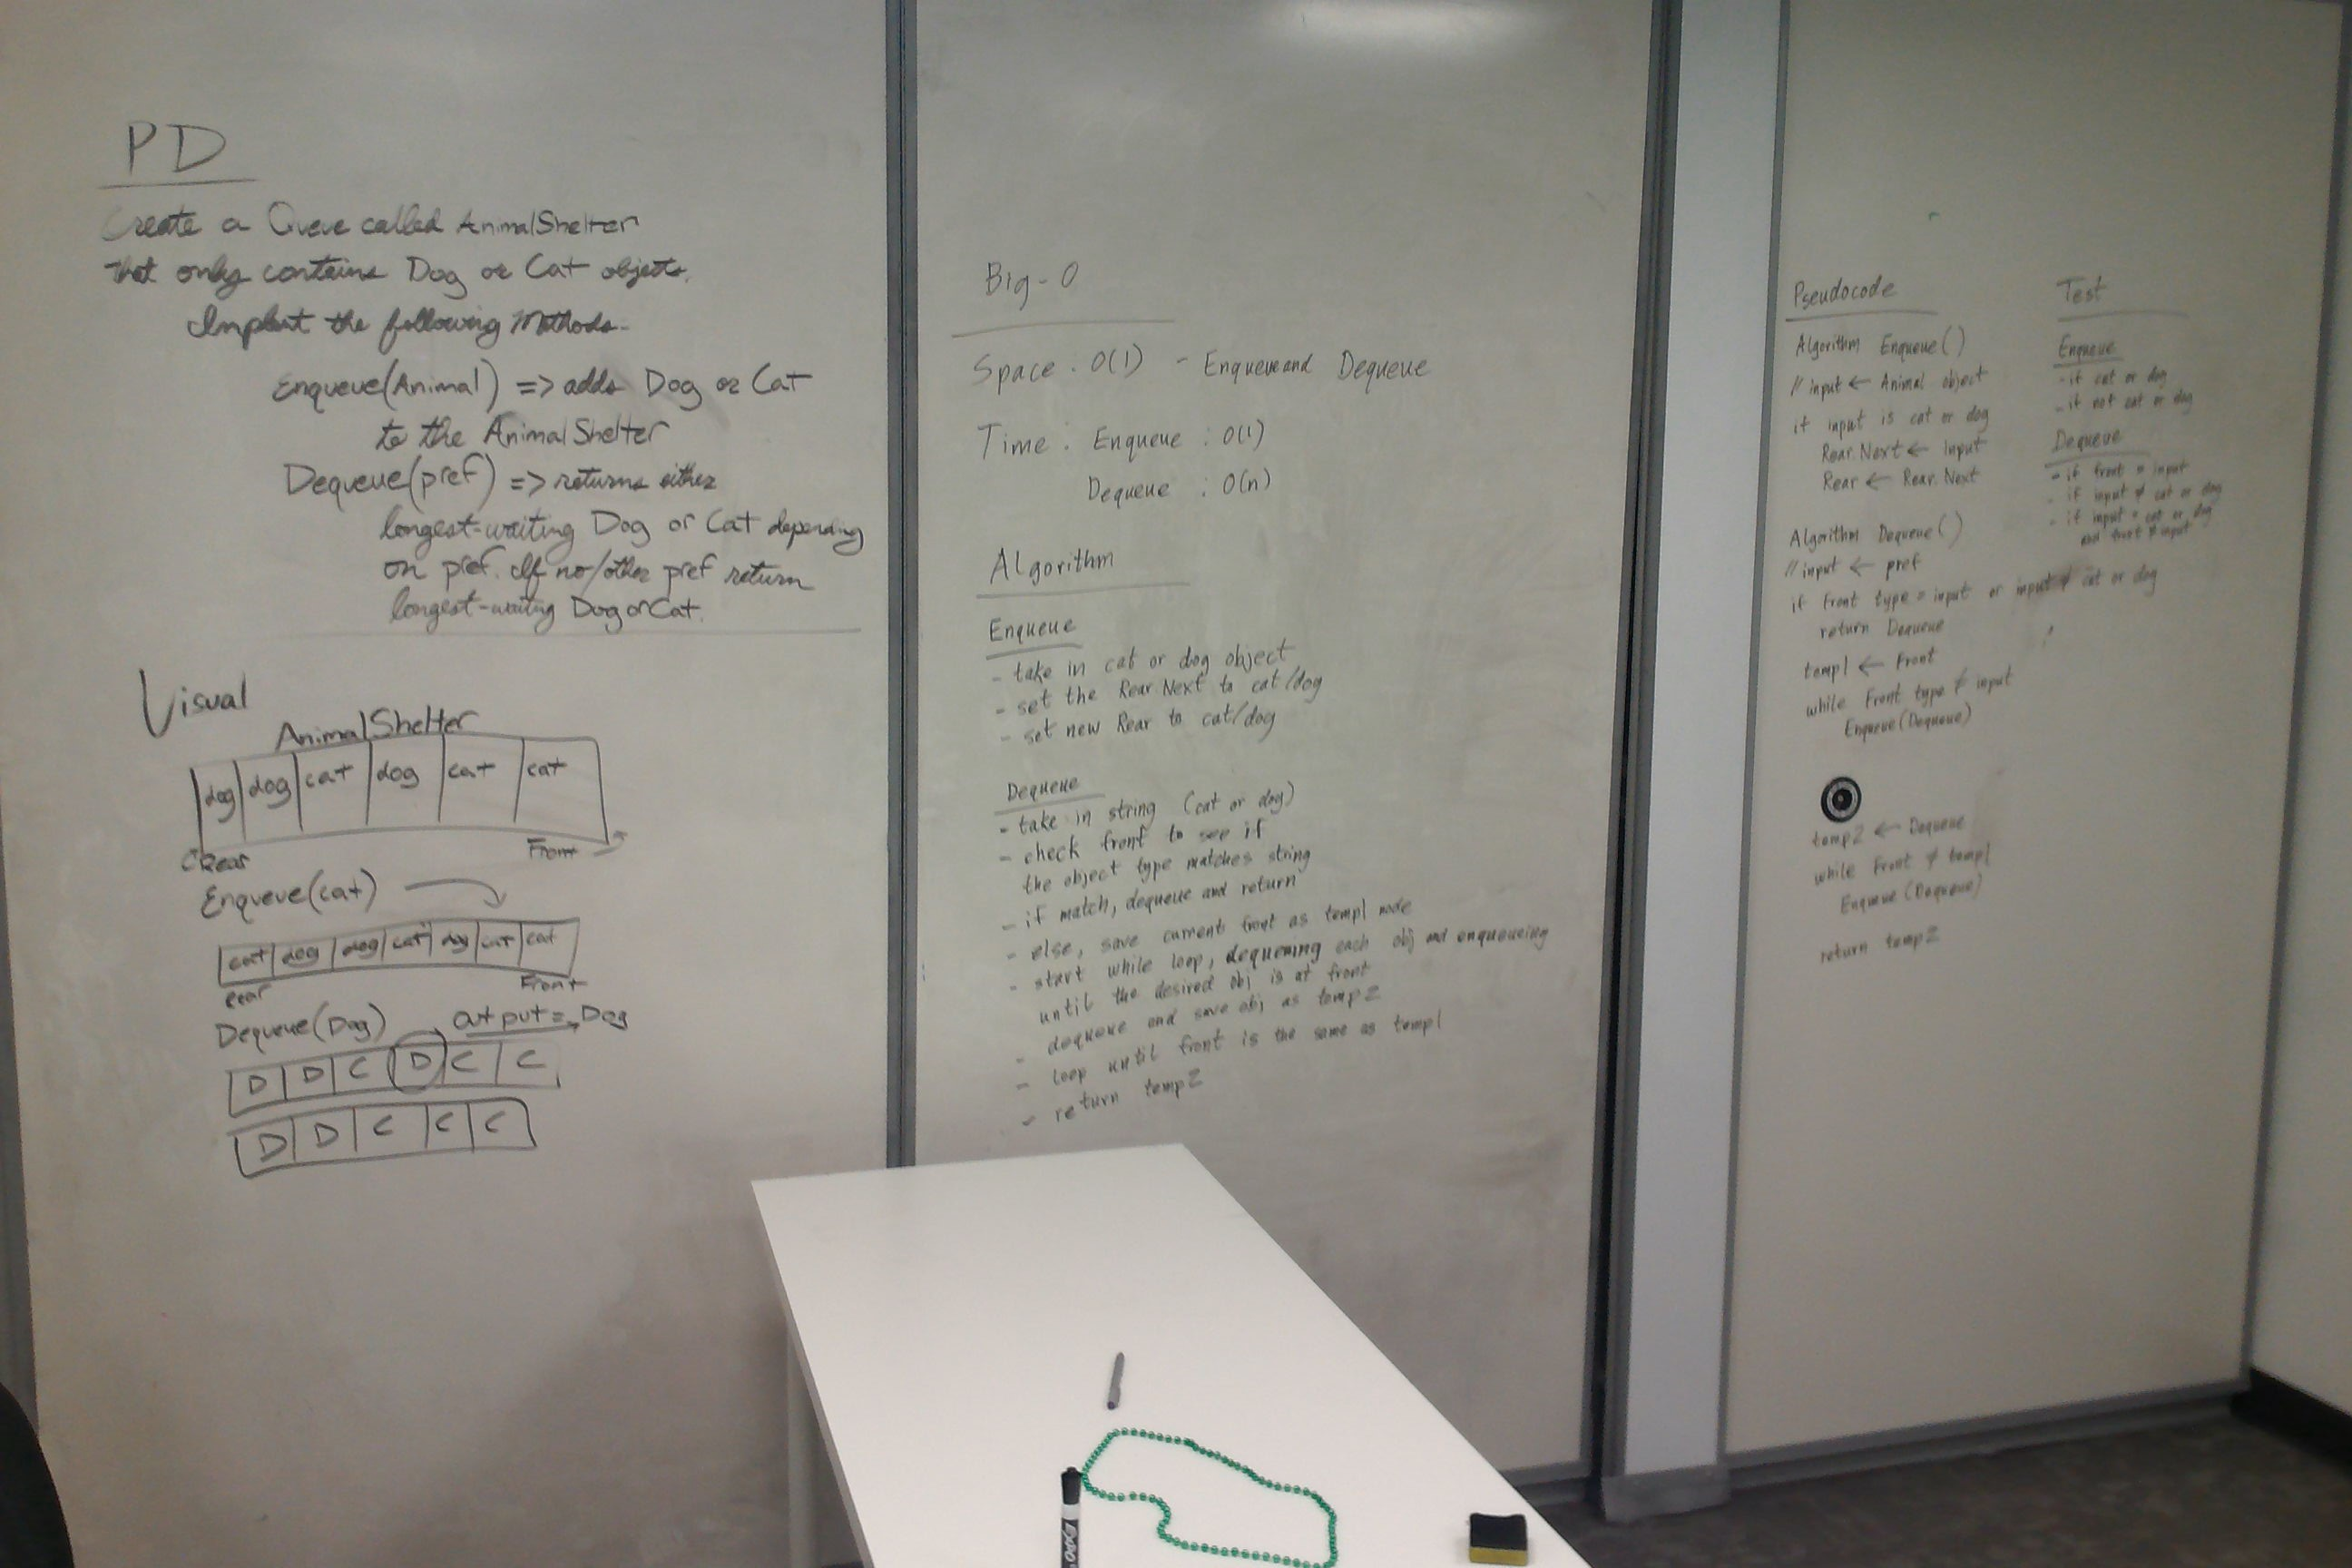 PD
Create a Queue called AnimalShelter
that only contains Dog or Cat objects.
Implent the following Methods.
Enqueue(Animal) => adds Dog or Cat
to the AnimalShelter
Dequeue(pref) => returns either
longest-waiting Dog or Cat depending
on pref. If no/other pref return
longest-waiting Dog or Cat.
Visual
AnimalShelter
dog dog cat dog cat cat
Rear Front
Enqueue(cat)
cat dog dog cat dog cat cat
Rear Front
Dequeue(Dog) output = Dog
D D C D C C
D D C C C
Big-O
Space: O(1) - Enqueue and Dequeue
Time: Enqueue : O(1)
Dequeue : O(n)
Algorithm
Enqueue
- take in cat or dog object
- set the Rear.Next to cat/dog
- set new Rear to cat/dog
Dequeue
- take in string (cat or dog)
- check front to see if
the object type matches string
- if match, dequeue and return
- else, save current front as temp1 node
- start while loop, dequeuing each obj and enqueueing
until the desired obj is at front
- dequeue and save obj as temp2
- loop until front is the same as temp1
- return temp2
Pseudocode
Algorithm Enqueue()
// input ← Animal object
if input is cat or dog
Rear.Next ← Input
Rear ← Rear.Next
Algorithm Dequeue()
// input ← pref
if Front type = input or input ≠ cat or dog
return Dequeue
temp1 ← Front
while Front type ≠ input
Enqueue(Dequeue)
temp2 ← Dequeue
while Front ≠ temp1
Enqueue(Dequeue)
return temp2
Test
Enqueue
- if cat or dog
- if not cat or dog
Dequeue
- if front = input
- if input ≠ cat or dog
- if input = cat or dog
and front ≠ input
EXPO